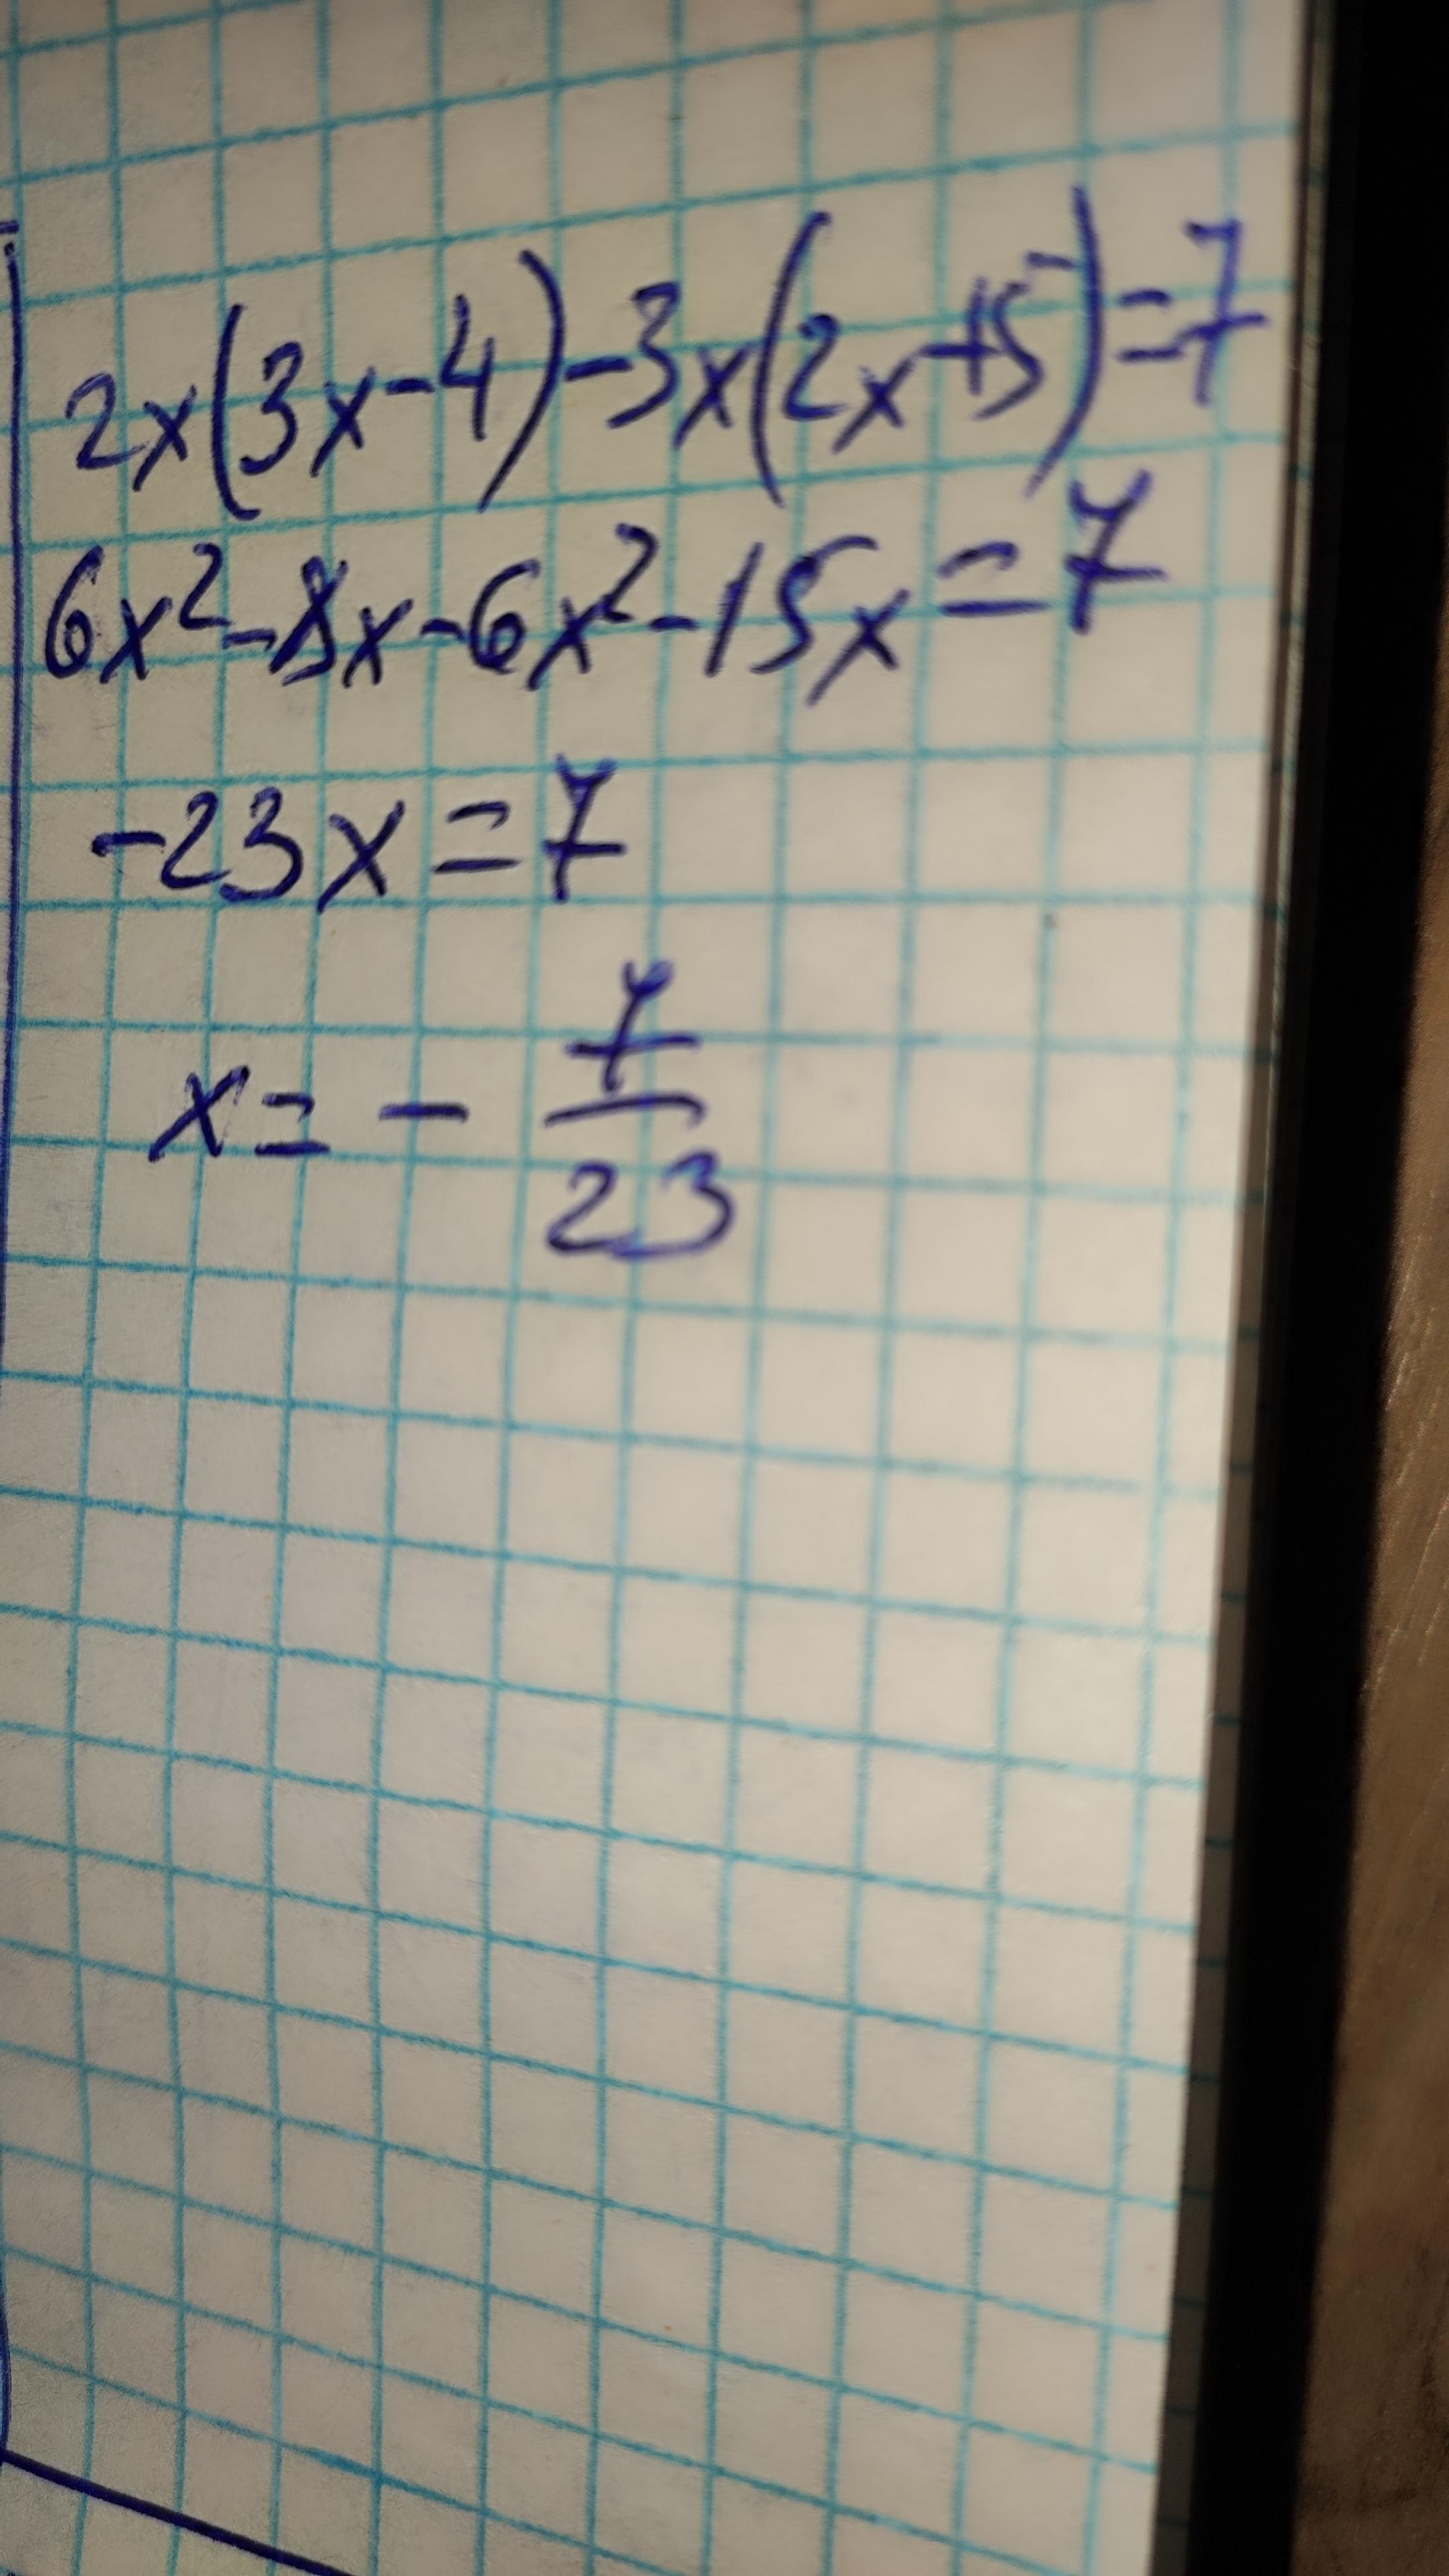 2x(3x-4)-3x(2x+5)=7
6x²-8x-6x²-15x=7
-23x=7
x= - 7/23